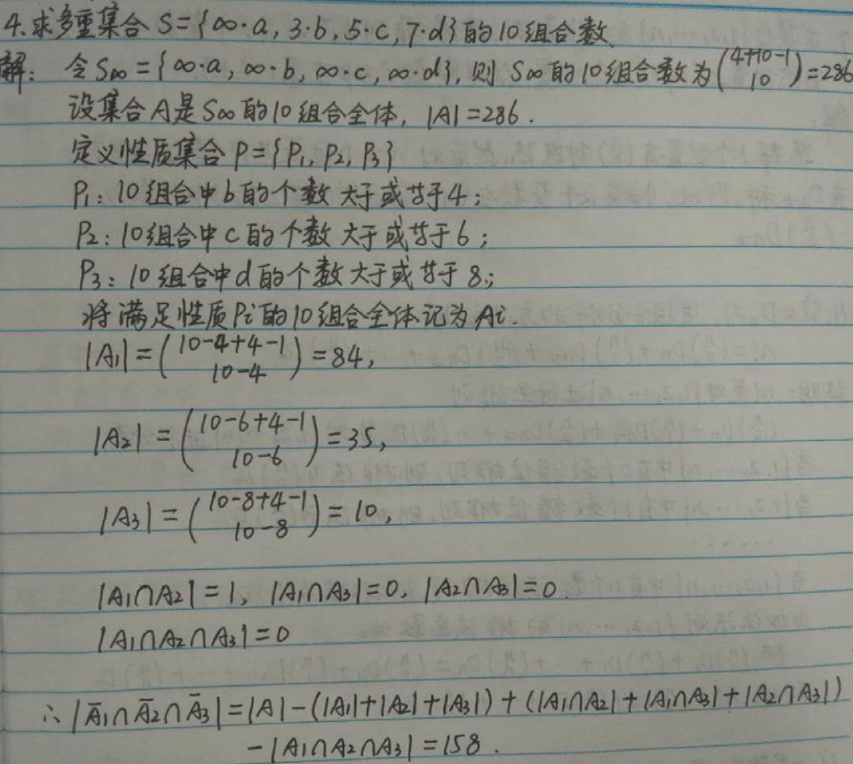 4.求多重集合 S={∞·a, 3·b, 5·c, 7·d}的10组合数
解: 令S∞={∞·a, ∞·b, ∞·c, ∞·d}, 则 S∞的10组合数为(4+10-1 10)=286
设集合A是S∞的10组合全体, |A|=286.
定义性质集合P={P₁, P₂, P₃}
P₁: 10组合中b的个数大于或等于4;
P₂: 10组合中c的个数大于或等于6;
P₃: 10组合中d的个数大于或等于8;
将满足性质Pi的10组合全体记为Ai.
|A₁|=(10-4+4-1 10-4)=84,
|A₂|=(10-6+4-1 10-6)=35,
|A₃|=(10-8+4-1 10-8)=10,
|A₁∩A₂|=1, |A₁∩A₃|=0, |A₂∩A₃|=0
|A₁∩A₂∩A₃|=0
∴|Ā₁∩Ā₂∩Ā₃|=|A|-(|A₁|+|A₂|+|A₃|)+(|A₁∩A₂|+|A₁∩A₃|+|A₂∩A₃|)
-|A₁∩A₂∩A₃|=158.